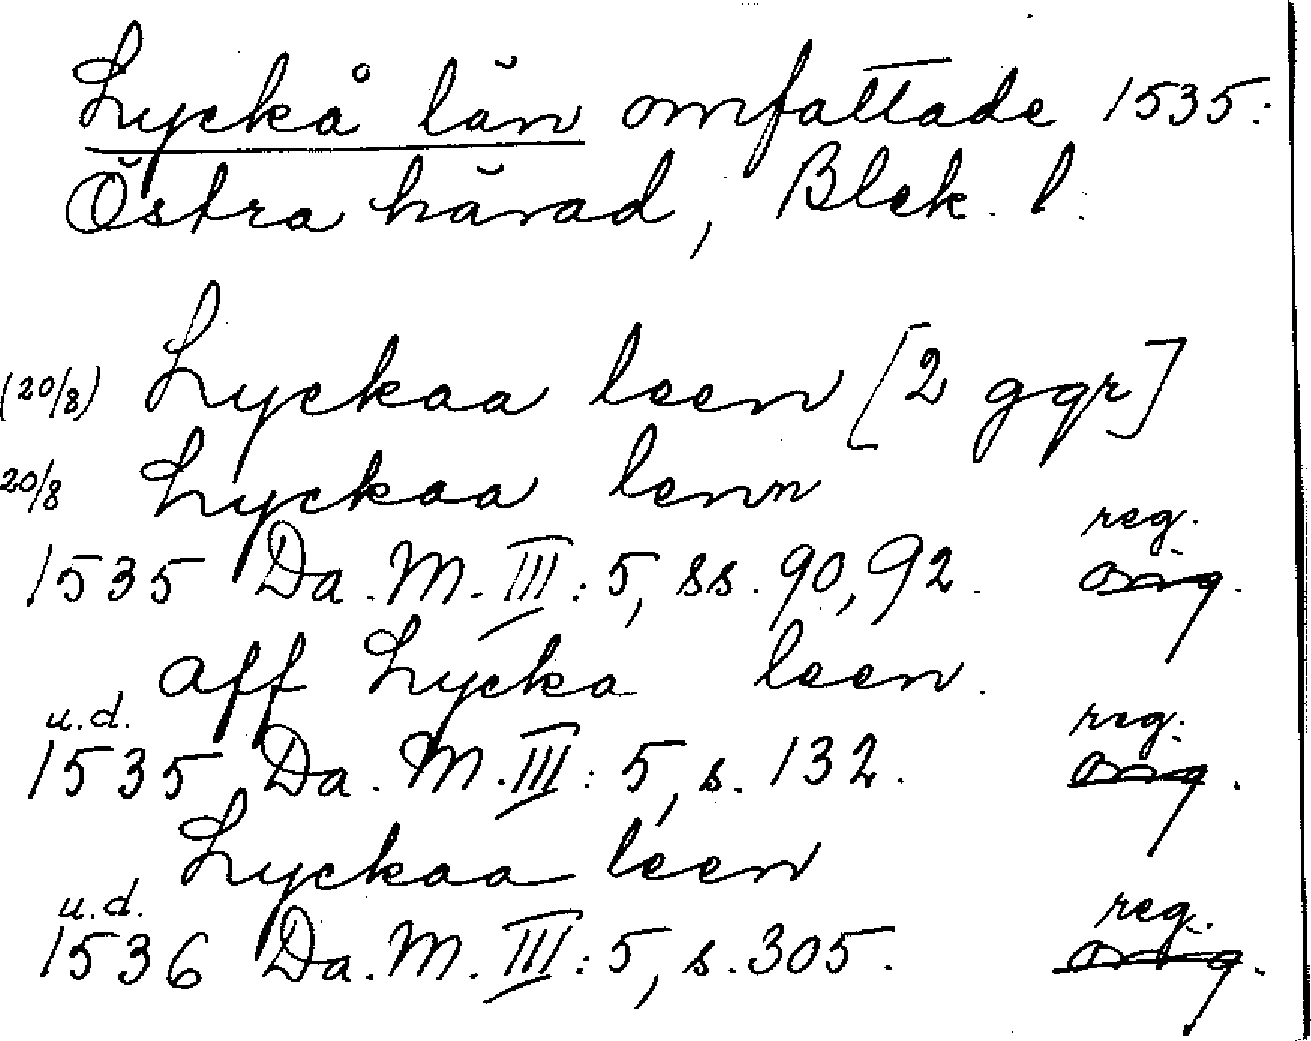 Lyckå län omfattade 1535:
Östra härad, Blek. l.
(20/8) Lyckaa leen [2 ggr]
20/8 Lyckaa lenn
reg.
1535 Da. M. III: 5, ss. 90, 92. org.
aff Lycka leen.
u.d. reg.
1535 Da. M. III: 5, s. 132. org.
Lyckaa leen
u.d. reg.
1536 Da. M. III: 5, s. 305. org.